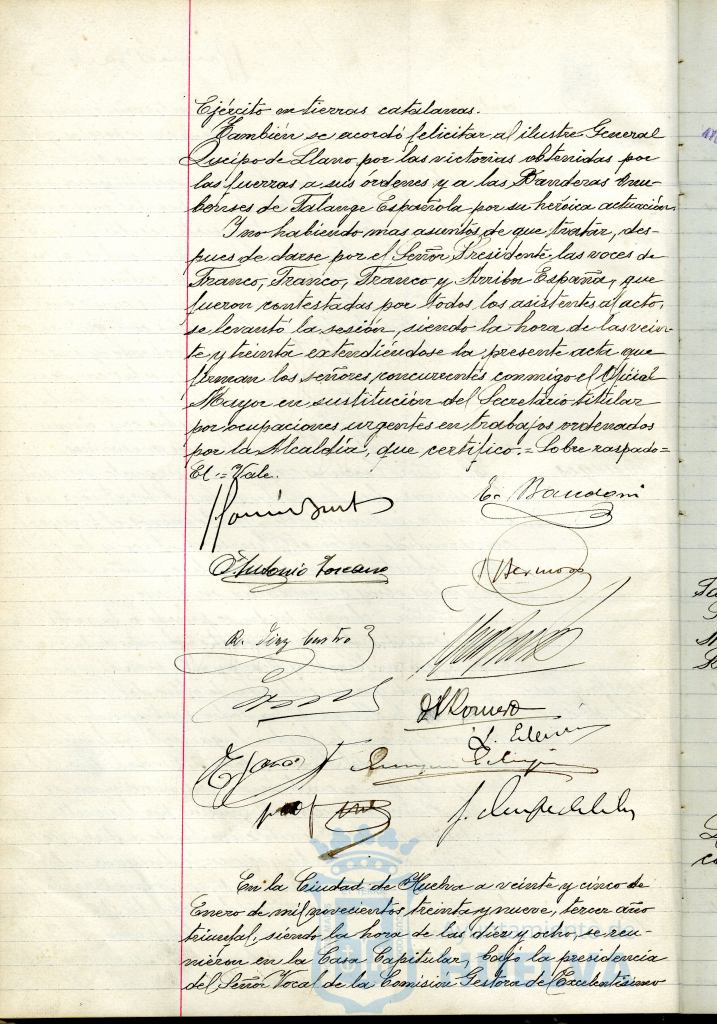 Ejército en tierras catalanas.
También se acordó felicitar al ilustre General
Queipo de Llano por las victorias obtenidas por
las fuerzas a sus órdenes y a las Banderas Onu-
benses de Falange Española por su heróica actuación.
Y no habiendo mas asuntos de que tratar, des-
pues de darse por el Señor Presidente las voces de
Franco, Franco, Franco y Arriba España, que
fueron contestadas por todos los asistentes al acto,
se levantó la sesión, siendo la hora de las vein-
te y treinta extendiéndose la presente acta que
firman los señores concurrentes conmigo el Oficial
Mayor en sustitución del Secretario titular
por ocupaciones urgentes en trabajos ordenados
por la Alcaldía, que certifico.= Sobre raspado=
El.= Vale.
Antonio Toscano
R. Diaz Castro
Romero
En la Ciudad de Huelva a veinte y cinco de
Enero de mil novecientos treinta y nueve, tercer año
triunfal, siendo la hora de las diez y ocho, se reu-
nieron en la Casa Capitular, bajo la presidencia
del Señor Vocal de la Comisión Gestora del Excelentísimo
HUELVA